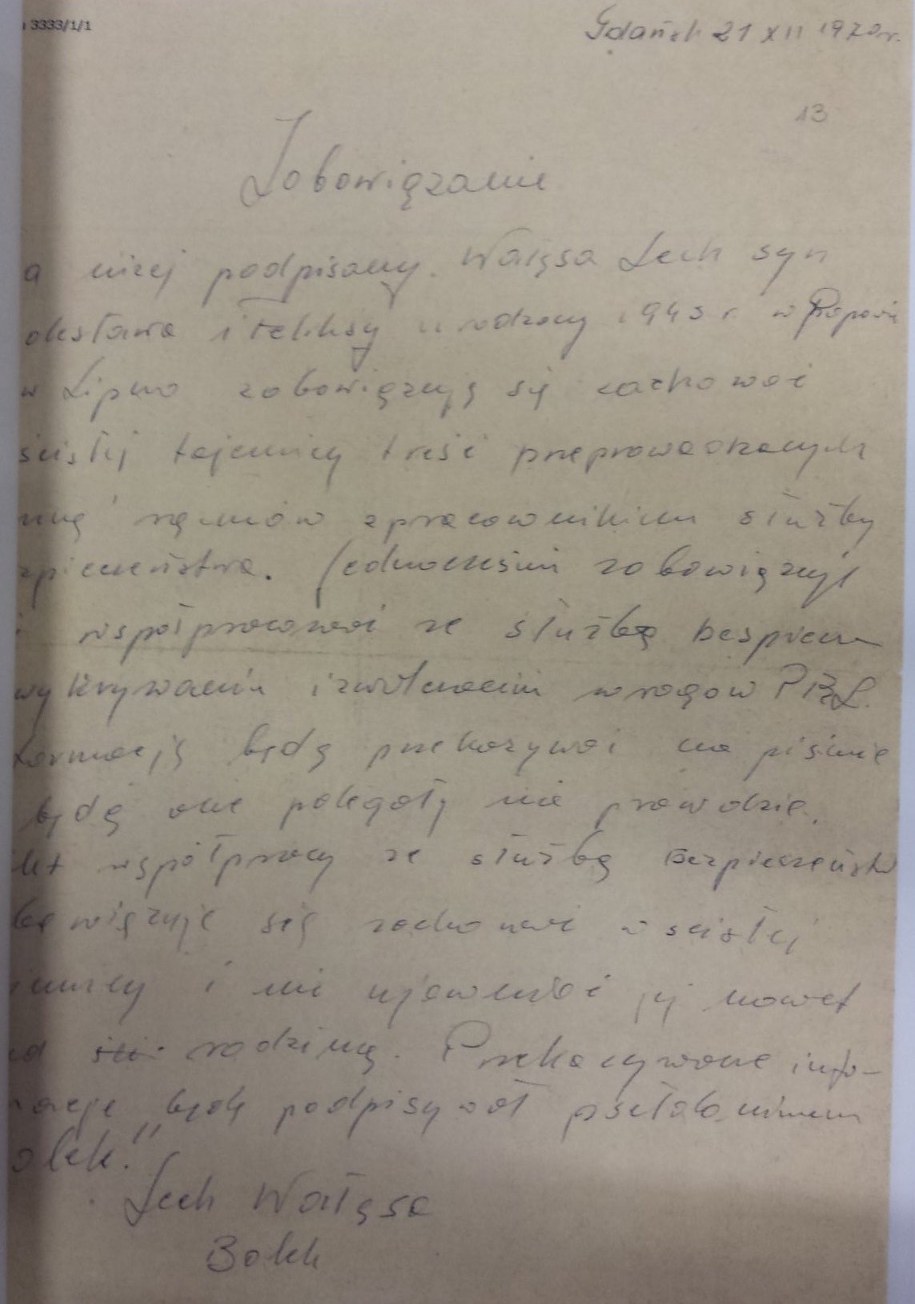 3333/1/1
Gdańsk 21 XII 1970 r.
13
Zobowiązanie
a niżej podpisany. Wałęsa Lech syn
olesława i Feliksy urodzony 1943 r. w Popowie
w Lipno zobowiązuję się zachować
ścisłej tajemnicy treść przeprowadzanych
mną rozmów z pracownikiem służby
zpieczeństwa. Jednocześnie zobowiązuję
i współpracować ze służbą bespiecze
wykrywaniu i zwalczaniu wrogów PRL.
formację będę przekazywać na piśmie
będą one polegały na prawdzie.
akt współpracy ze służbą Bezpieczeństw
bowiązuję się zachować w ścisłej
jemnicy i nie ujawniać jej nawet
ed rodziną. Przekazywane info-
macje będę podpisywał psełdonimem
olek."
Lech Wałęsa
Bolek